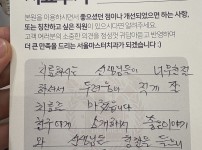 본원을 이용하시면서 좋으셨던 점이나 개선되었으면 하는 사항,
또는 칭찬하고 싶은 직원이 있으시다면 알려주세요.
고객 여러분의 소중한 의견을 정성껏 귀담아듣고 반영하여
더 큰 만족을 드리는 서울마스터치과가 되겠습니다 :)
치료하시는 선생님들이 너무 친절
하셔서 두려움 없이 잘
치료를 받았습니다
친구에게 소개해서
선생님들